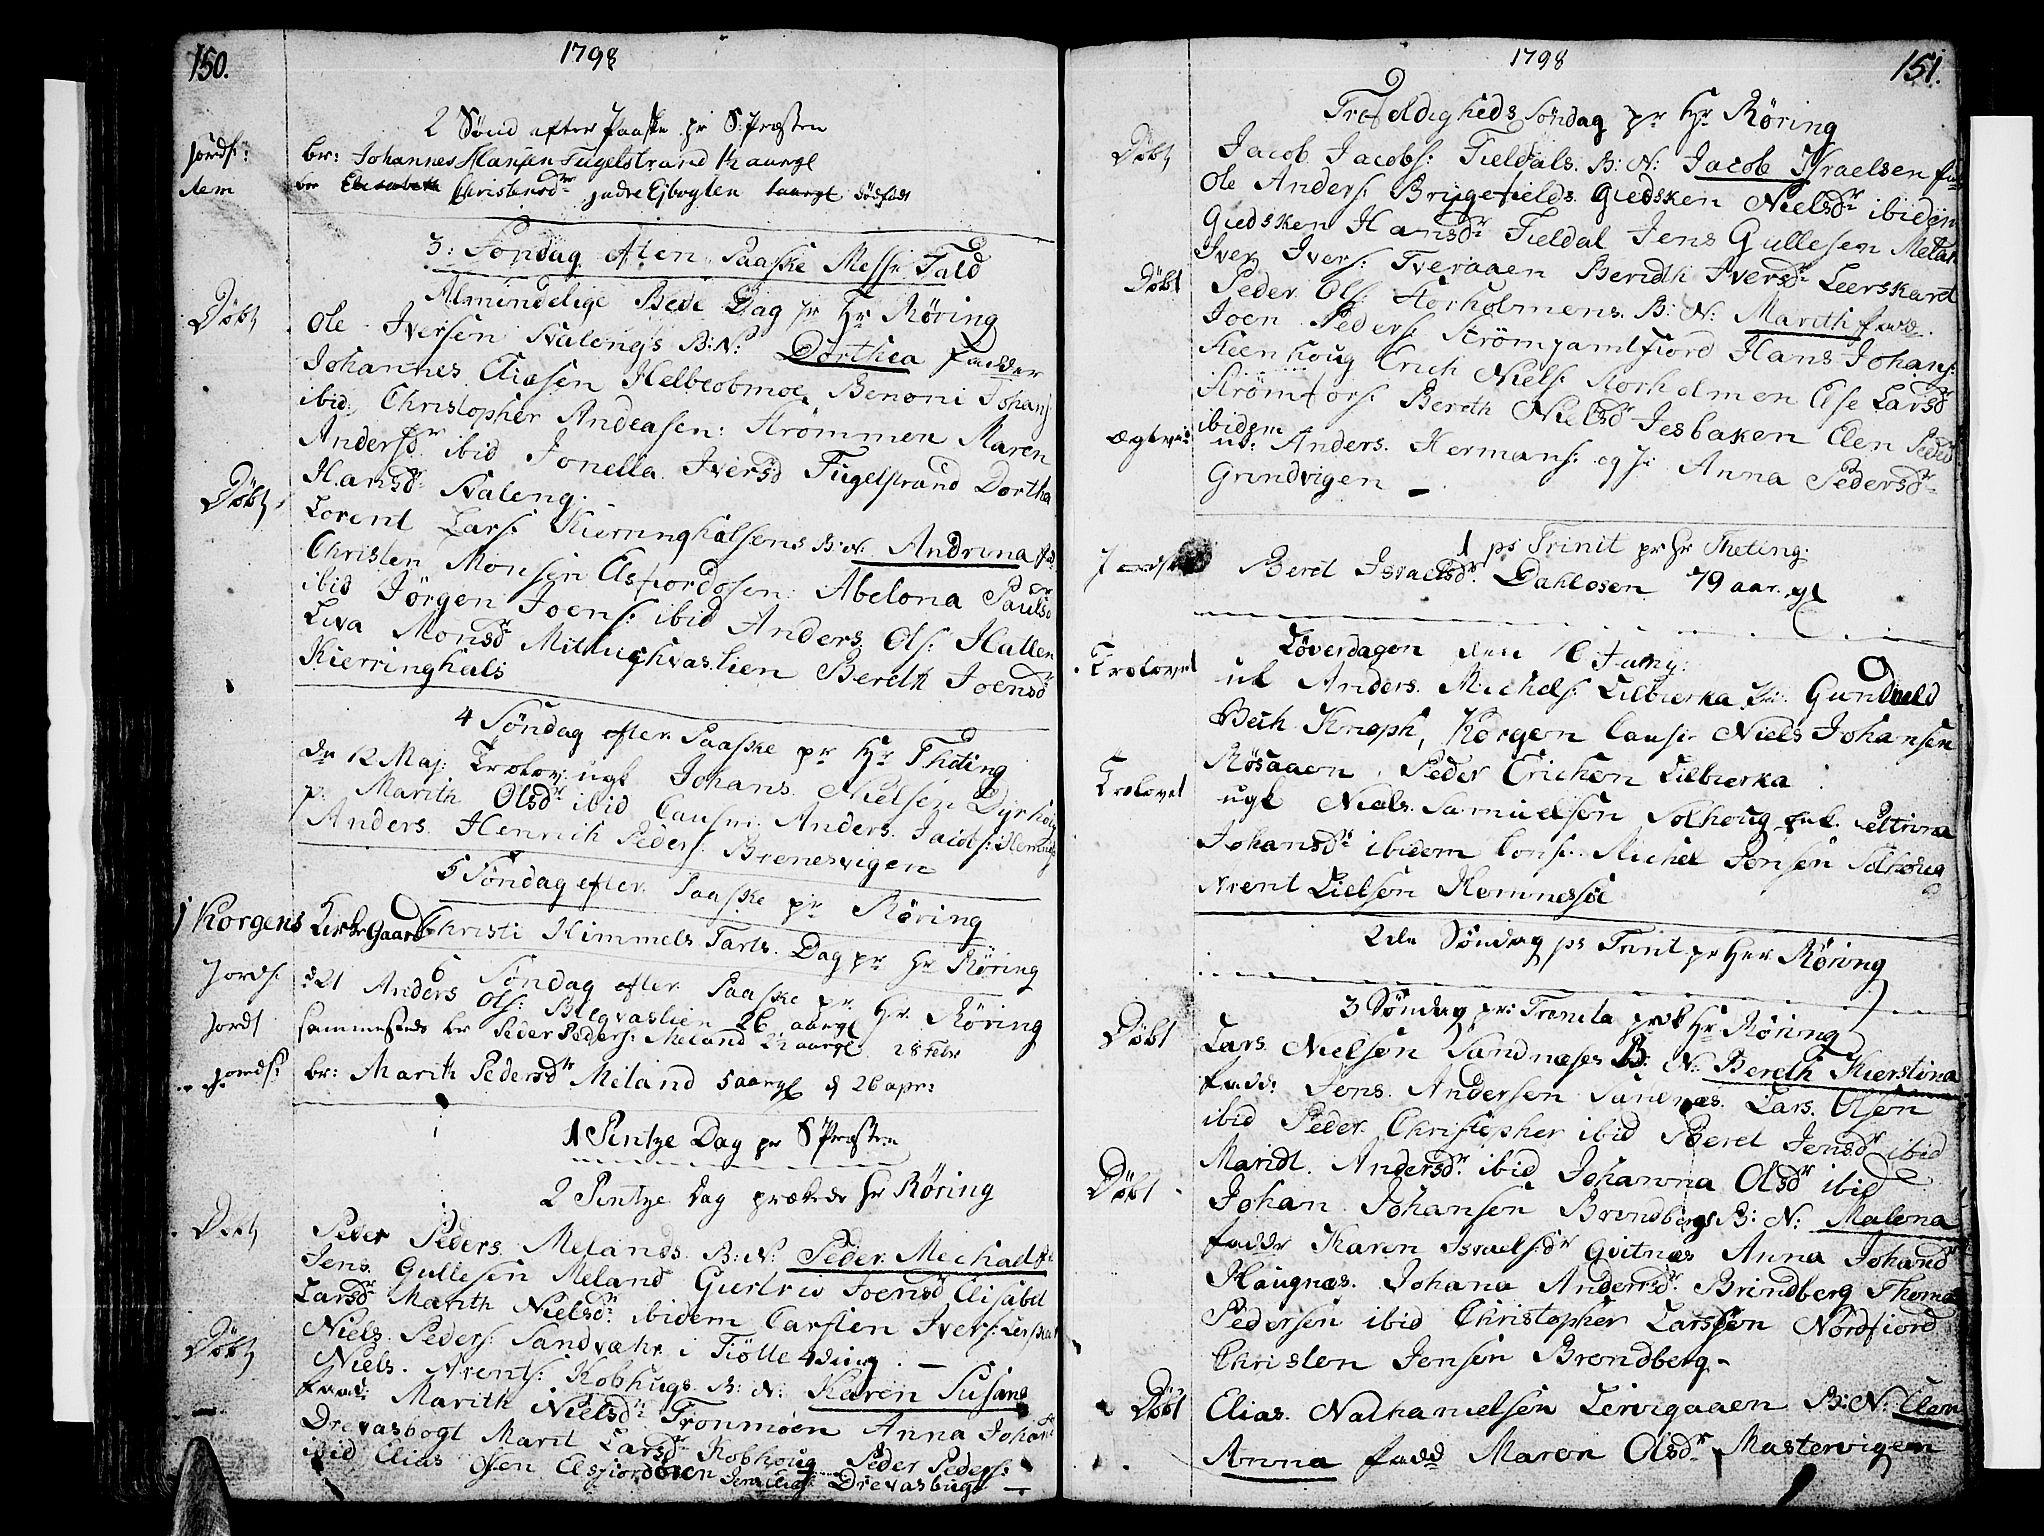 150.
1798
2 Sønd efter Paaske pr S. Præsten
Jordf: br: Johannes Hansen Fugelstrand 1½ aargl
dem br Christensdr Ejbogten dødfødt
3: Søndag eften Paaske Messe Fald
Almindelige Bede Dag pr Hr Røring
Døbt Ole Iversen Svalengs B:N: Dorthea fadder
Johannes Eliasen Helbeobmoe Benoni Johans
ibid. Christopher Andeasen: Strømmen Maren
Andersdr ibid Jonella Iversd Fugelstrand Dortha
Hansdr Svaleng.
Døbt Lorent Lars: Kierringhalsens B:N. Andrina fad
Christen Monsen Elsfiordosen: Abelona Paulsdr
ibid Jørgen Joens: ibid Anders Ols: Hallen
Leva Monsdr Bereth Joensdr
Kierringhals
4 Søndag efter Paaske pr Hr Theting
dn 12 Maj: Trolov: ugk Johans Nielsen Dyrhoug
p. Marith Olsdr ibid Caut: Anders Jacobs: Hemnes
Anders Henrich Peders Brenesvigen
5 Søndag efter Paaske pr Røring
i Korgens Kirke Gaard Christi Himmels Farts Dag pr Hr Røring
6 Søndag efter Paaske pr Hr. Røring
Jordf: d 21 Anders Ols: 26 aargl
Jordf sammesteds br Peder Peders: Meland 2½ aargl 28 Febr
Jordf: br: Marith Pedersdr Meland 5 aargl d 26 apr:
1 Pintze Dag pr S Præsten
2 Pintze Dag prækede Hr Røring
Døbt Peder Peders Melands B:N: Peder Mechael fad
Jens Gullesen Meland Giertrud Joensd Elisabet
Larsdr Marith Nielsdr ibidem Carsten Ivers: Lerskar
Niels Peders: Sandvær i Tiötte 4ding. —
Døbt Niels Arents: Kobhugs B:N: Karen Susana
fadd: Marith Nielsdr Tronmoen Anna Johansd
Drevasbogt Marit Larsdr Kobhoug Peder Peders:
ibid Elias Olsen Elsfiordosen Jens Elias: Drevasbugt —
1798
151.
Trefoldigheds Søndag pr Hr Røring
Døbt Jacob Jacobs: Fieldals. B:N: Jacob Israelsen fad
Ole Anders: Bryggefields Giedsken Nielsdr ibidem
Giedsken Hansdr Fieldal Jens Gullesen Melan
Iver Ivers: Tveraaen Beredh Iversdr Leerskaret
Døbt Peder Ols: Storholmens B:N: Marith fad.
Joen Peders: Strömjamtfiord Hans Johans:
Steenhoug Erich Niels: Storholmen Else Larsdr
Strömfors: Bereth Nielsdr Jesbaken Elen Pedersd
ibidem
Ægtevi: uk: Anders Hermans: og P: Anna Pedersdr
Grundvigen —
1 ps Trinit pr Hr Theting.
Jordf Beret Israelsdr Dahlosen 79 aar. gl
Løverdagen den 16 Juny:
Trolovet uk Anders Michels: Lilbierka P: Gundhild
Bech Knoph, Korgen Caut: Niels Johansen
Røsaaen Peder Erichsen Lilbierka
Trolovet ugk Niels Samuelsen Solhoug og P. Pettrina
Johansdr ibidem Cons: Michel Jonsen Solhoug
Arent Lielsen Hemnesse
2den Søndag ps Trinit pr Herr Røring
3 Søndag ps: Trinita præk Hr Røring
Døbt Lars Nielsen Sandnæses B:N: Bereth Kierstina
fadd: Jens Andersen Sandnæs Lars Olsen
ibid Peder Christopher ibid Beret Jensdr ibid
Maridt Andersdr ibid Johanna Olsdr ibid
Døbt Johan Johansen Brendbergs B:N: Malena
faddr Karen Israelsdr Qvitnæs Anna Johandr
Haugnæs Johana Andersdr Brindberg Thomas
Pedersen ibid Christopher Larssen Nordfiord
Christen Jensen Brendberg —
Døbt Elias Nathanielsen Lervigaaen B:N: Elen
Anna fadd Maren Olsdr Mastervigen